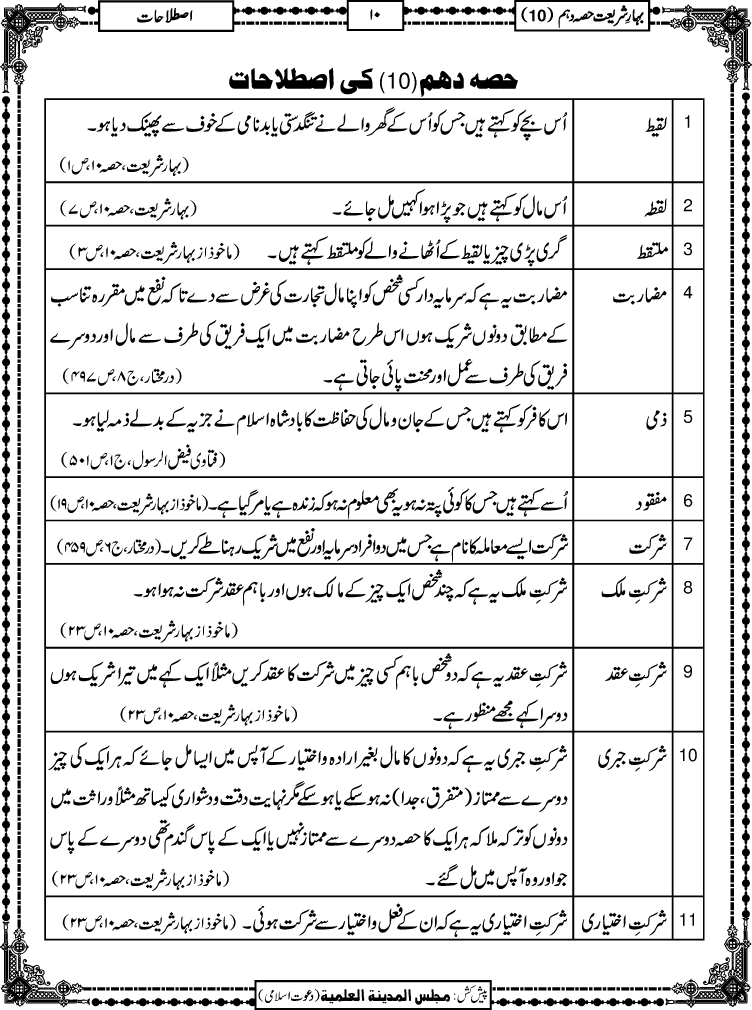 بہارِشریعت حصہ دہم (10)
۱۰
اصطلاحات
حصہ دھم(10) کی اصطلاحات
1 لقیط اُس بچے کو کہتے ہیں جس کو اُس کے گھر والے نے تنگدستی یا بدنامی کے خوف سے پھینک دیا ہو۔
(بہارشریعت،حصہ۱۰،ص۱)
2 لقطہ اُس مال کو کہتے ہیں جو پڑا ہوا کہیں مل جائے۔ (بہارشریعت،حصہ۱۰،ص۷)
3 ملتقط گری پڑی چیز یا لقیط کے اُٹھانے والے کو ملتقط کہتے ہیں۔ (ماخوذ از بہارشریعت،حصہ۱۰،ص۳)
4 مضاربت مضاربت یہ ہے کہ سرمایہ دار کسی شخص کو اپنا مال تجارت کی غرض سے دے تاکہ نفع میں مقررہ تناسب
کے مطابق دونوں شریک ہوں اس طرح مضاربت میں ایک فریق کی طرف سے مال اور دوسرے
فریق کی طرف سے عمل اور محنت پائی جاتی ہے۔ (درمختار،ج۸،ص۴۹۷)
5 ذمی اس کافر کو کہتے ہیں جس کے جان و مال کی حفاظت کا بادشاہ اسلام نے جزیہ کے بدلے ذمہ لیا ہو۔
(فتاوی فیض الرسول،ج۱،ص۵۰۱)
6 مفقود اُسے کہتے ہیں جس کا کوئی پتہ نہ ہو یہ بھی معلوم نہ ہو کہ زندہ ہے یا مر گیا ہے۔ (ماخوذ از بہارشریعت،حصہ۱۰،ص۱۹)
7 شرکت شرکت ایسے معاملہ کا نام ہے جس میں دو افراد سرمایہ اور نفع میں شریک رہنا طے کریں۔ (درمختار،ج۶،ص۴۵۹)
8 شرکتِ ملک شرکتِ ملک یہ ہے کہ چند شخص ایک چیز کے مالک ہوں اور باہم عقد شرکت نہ ہوا ہو۔
(ماخوذ از بہارشریعت،حصہ۱۰،ص۲۳)
9 شرکتِ عقد شرکتِ عقد یہ ہے کہ دو شخص باہم کسی چیز میں شرکت کا عقد کریں مثلاً ایک کہے میں تیرا شریک ہوں
دوسرا کہے مجھے منظور ہے۔ (ماخوذ از بہارشریعت،حصہ۱۰،ص۲۳)
10 شرکتِ جبری شرکتِ جبری یہ ہے کہ دونوں کا مال بغیر ارادہ و اختیار کے آپس میں ایسا مل جائے کہ ہر ایک کی چیز
دوسرے سے ممتاز (متفرق، جدا) نہ ہو سکے یا ہو سکے مگر نہایت دقت و دشواری کیساتھ مثلاً وراثت میں
دونوں کو ترکہ ملا کہ ہر ایک کا حصہ دوسرے سے ممتاز نہیں یا ایک کے پاس گندم تھی دوسرے کے پاس
جو اور وہ آپس میں مل گئے۔ (ماخوذ از بہارشریعت،حصہ۱۰،ص۲۳)
11 شرکتِ اختیاری شرکتِ اختیاری یہ ہے کہ ان کے فعل و اختیار سے شرکت ہوئی۔ (ماخوذ از بہارشریعت،حصہ۱۰،ص۲۳)
پیش کش: مجلس المدینة العلمیة (دعوت اسلامی)